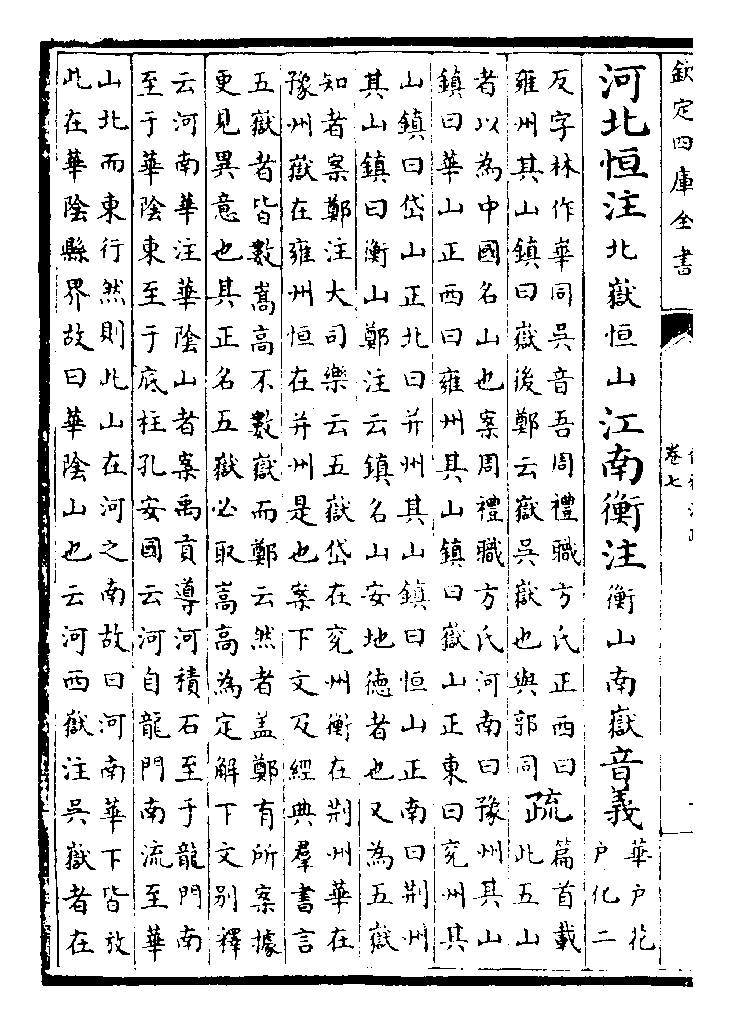 欽定四庫全書
卷七
河北恒注北嶽恒山江南衡注衡山南嶽音義華戶花
戶化二
反字林作崋同吳音吾周禮職方氏正西曰
雍州其山鎮曰嶽後鄭云嶽吳嶽也與郭同
疏篇首載
此五山
者以為中國名山也案周禮職方氏河南曰豫州其山
鎮曰華山正西曰雍州其山鎮曰嶽山正東曰兗州其
山鎮曰岱山正北曰并州其山鎮曰恒山正南曰荆州
其山鎮曰衡山鄭注云鎮名山安地德者也又為五嶽
知者案鄭注大司樂云五嶽岱在兗州衡在荆州華在
豫州嶽在雍州恒在并州是也案下文及經典羣書言
五嶽者皆數嵩高不數嶽而鄭云然者盖鄭有所案據
更見異意也其正名五嶽必取嵩高為定解下文别釋
云河南華注華陰山者案禹貢導河積石至于龍門南
至于華陰東至于底柱孔安國云河自龍門南流至華
山北而東行然則此山在河之南故曰河南華下皆放
此在華陰縣界故曰華陰山也云河西嶽注吳嶽者在